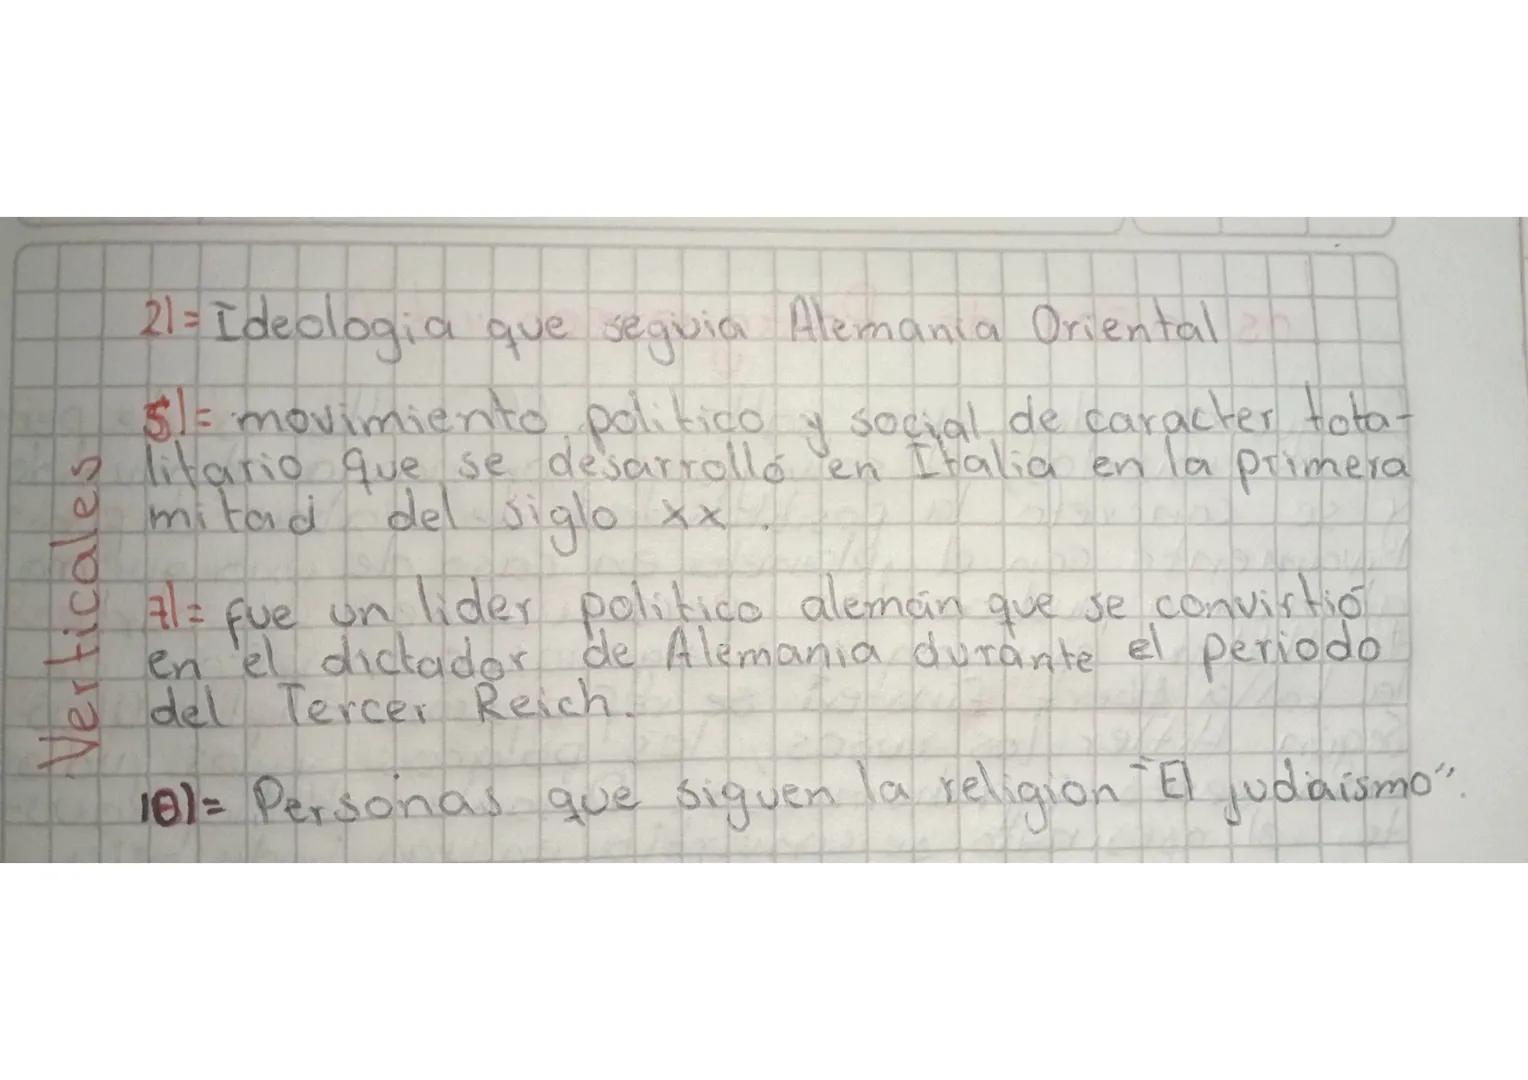 Verticales
2)= Ideologia que seguia Alemania Oriental
5)= movimiento politico y social de caracter tota-
litario que se desarrolló en Italia en la primera
mitad del siglo xx.
7)= fue un lider politico alemán que se convirtió
en el dictador de Alemania durante el periodo
del Tercer Reich.
10)= Personas que siguen la religion "El judaismo".